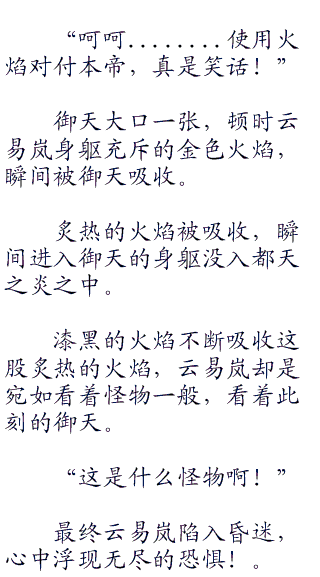 “呵呵........使用火
焰对付本帝，真是笑话！”
御天大口一张，顿时云
易岚身躯充斥的金色火焰，
瞬间被御天吸收。
炙热的火焰被吸收，瞬
间进入御天的身躯没入都天
之炎之中。
漆黑的火焰不断吸收这
股炙热的火焰，云易岚却是
宛如看着怪物一般，看着此
刻的御天。
“这是什么怪物啊！”
最终云易岚陷入昏迷，
心中浮现无尽的恐惧！。